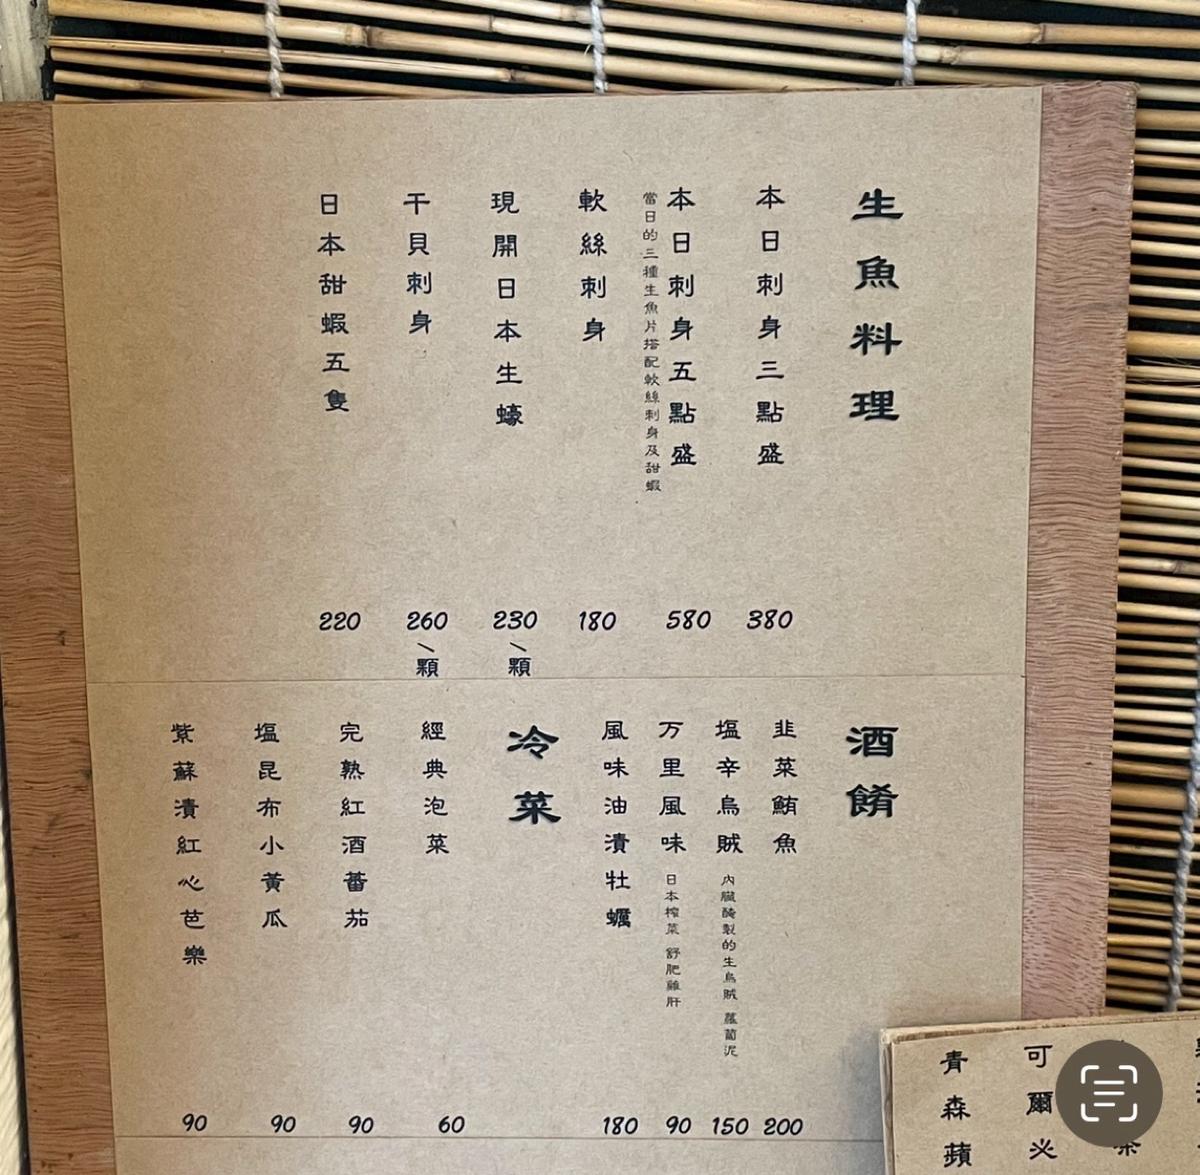 生魚料理
本日刺身三點盛
380
本日刺身五點盛
當日的三種生魚片搭配軟絲刺身及甜蝦
580
軟絲刺身
180
現開日本生蠔
230/顆
干貝刺身
260/顆
日本甜蝦五隻
220
酒餚
韭菜鮪魚
200
塩辛烏賊 內臟醃製的生烏賊 蘿蔔泥
150
万里風味 日本榨菜 舒肥雞肝
90
風味油漬牡蠣
180
冷菜
經典泡菜
60
完熟紅酒蕃茄
90
塩昆布小黃瓜
90
紫蘇漬紅心芭樂
90
可爾必
青森蘋